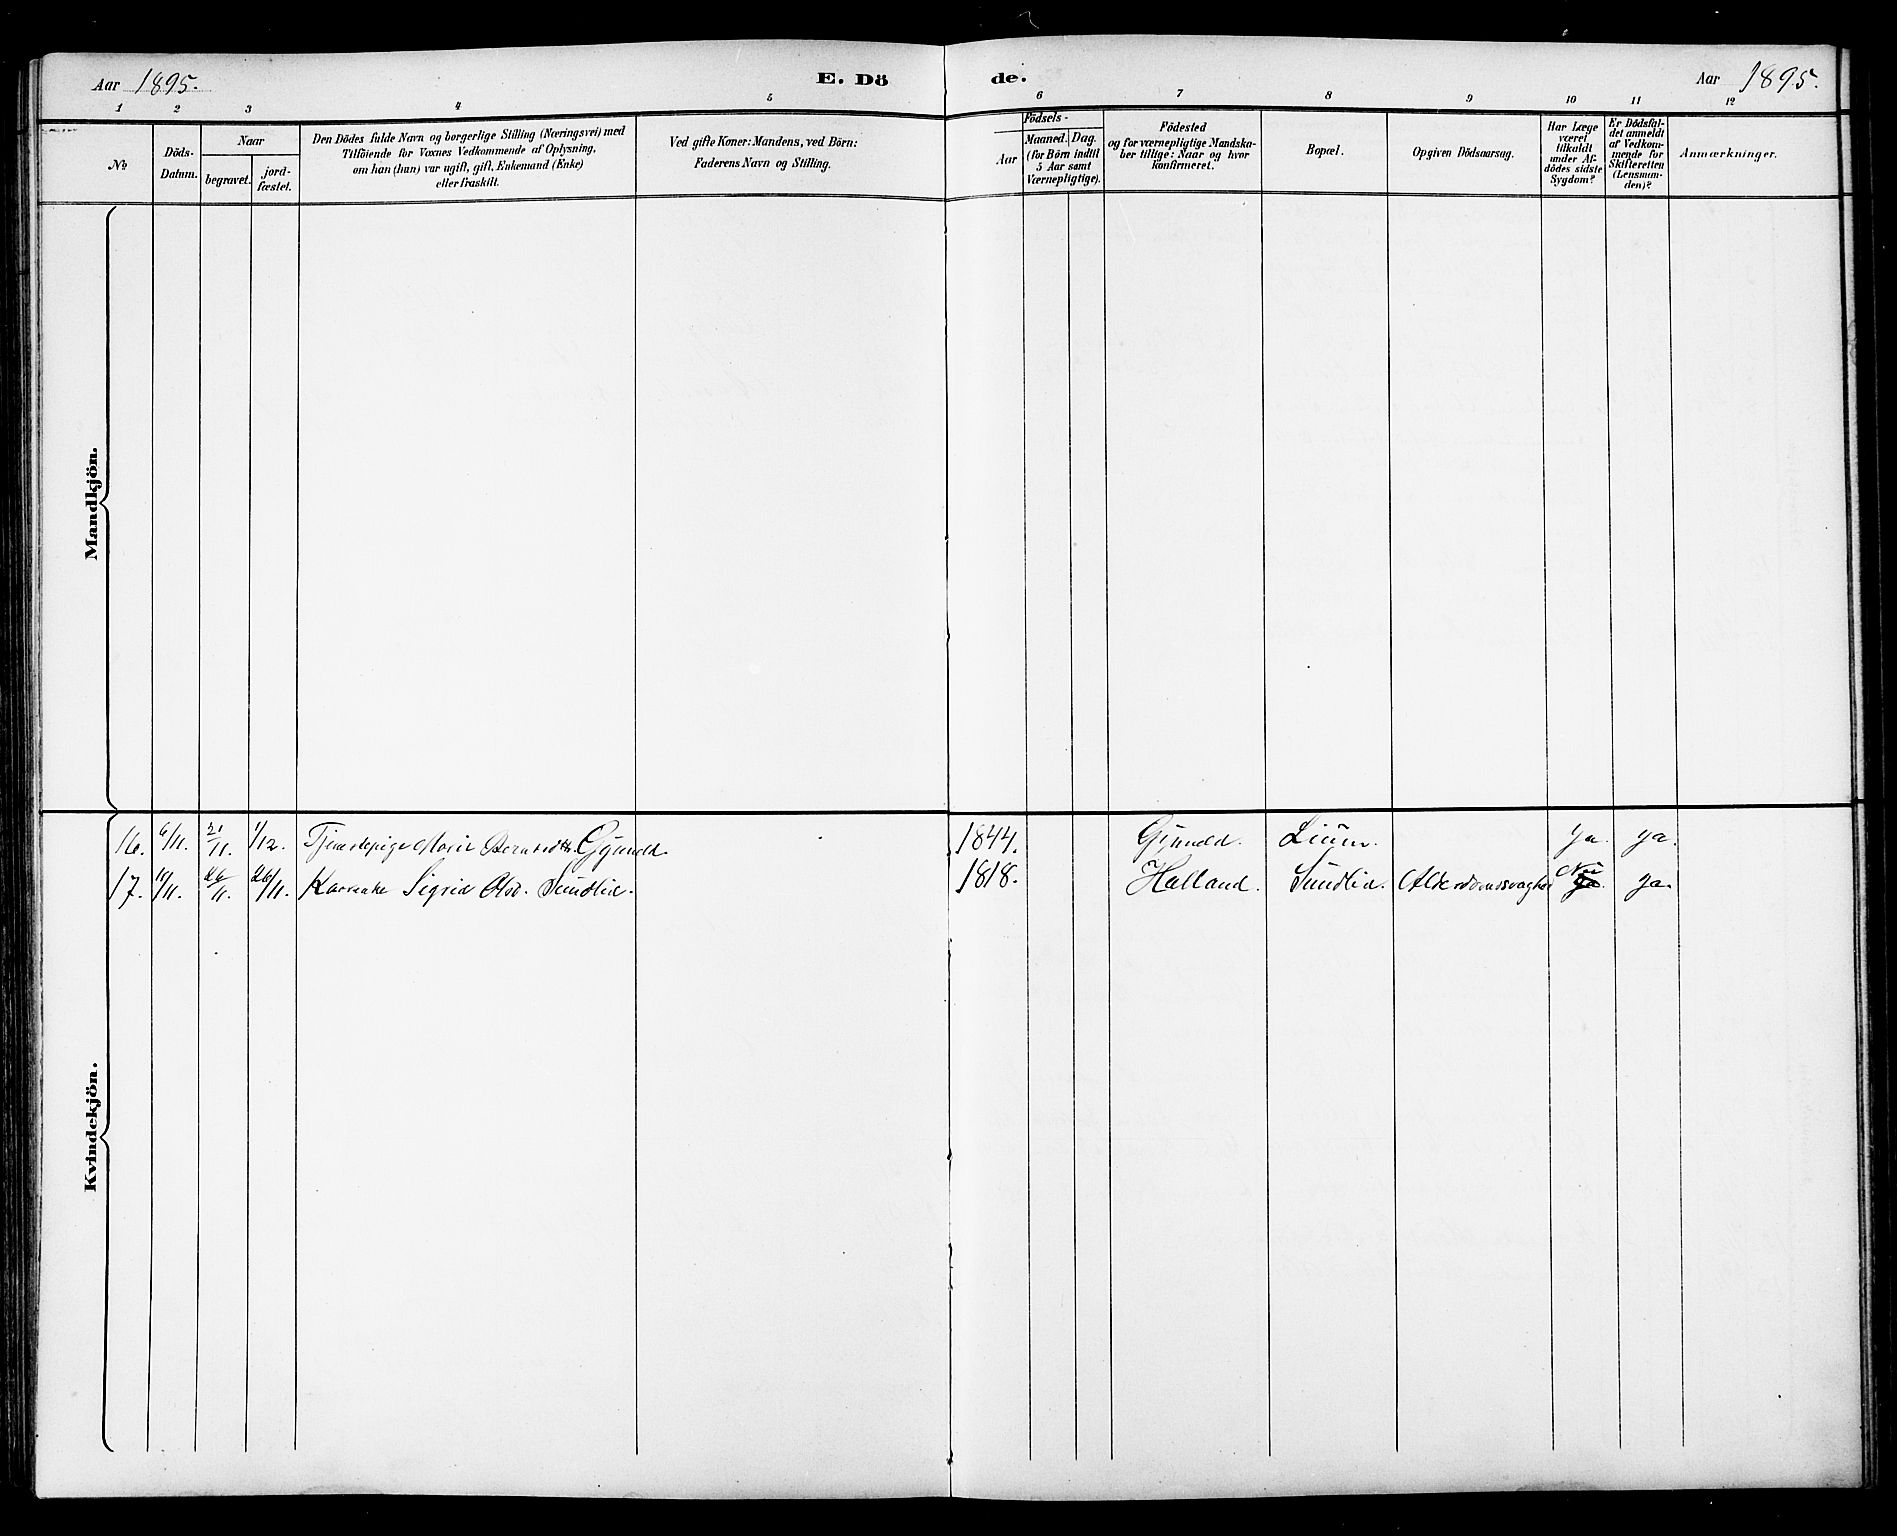 Aar 1895. E. Dö de. Aar 1895.
1 2 3 4 5 6 7 8 9 10 11 12
No
Döds-
Datum.
Naar
begravet.
jord-
fæstet.
Den Dödes fulde Navn og borgerlige Stilling (Næringsvei) med
Tilföiende for Voxnes Vedkommende af Oplysning,
om han (hun) var ugift, gift, Enkemand (Enke)
eller fraskilt.
Ved gifte Koner: Mandens, ved Börn:
Faderens Navn og Stilling.
Födsels-
Aar
Maaned. Dag.
(for Börn indtil
5 Aar samt
Værnepligtige).
Födested
og for værnepligtige Mandska-
ber tillige: Naar og hvor
konfirmeret.
Bopæl.
Opgiven Dödsaarsag.
Har Læge
været
tilkaldt
under Af-
dödes sidste
Sygdom?
Er Dödsfal-
det anmeldt
af Vedkom-
mende for
Skifteretten
(Lensman-
den)?
Anmærkninger.
Mandkjön.
Kvindekjön.
16. 6/11. 21/11. 1/12. Tjenestepige Marie 1844. ja. ja.
17. 11/11. 26/11. 26/11. Sigrid Olsd. Sundlid. 1818. Halland. Sundlid. Nei ja. ja.